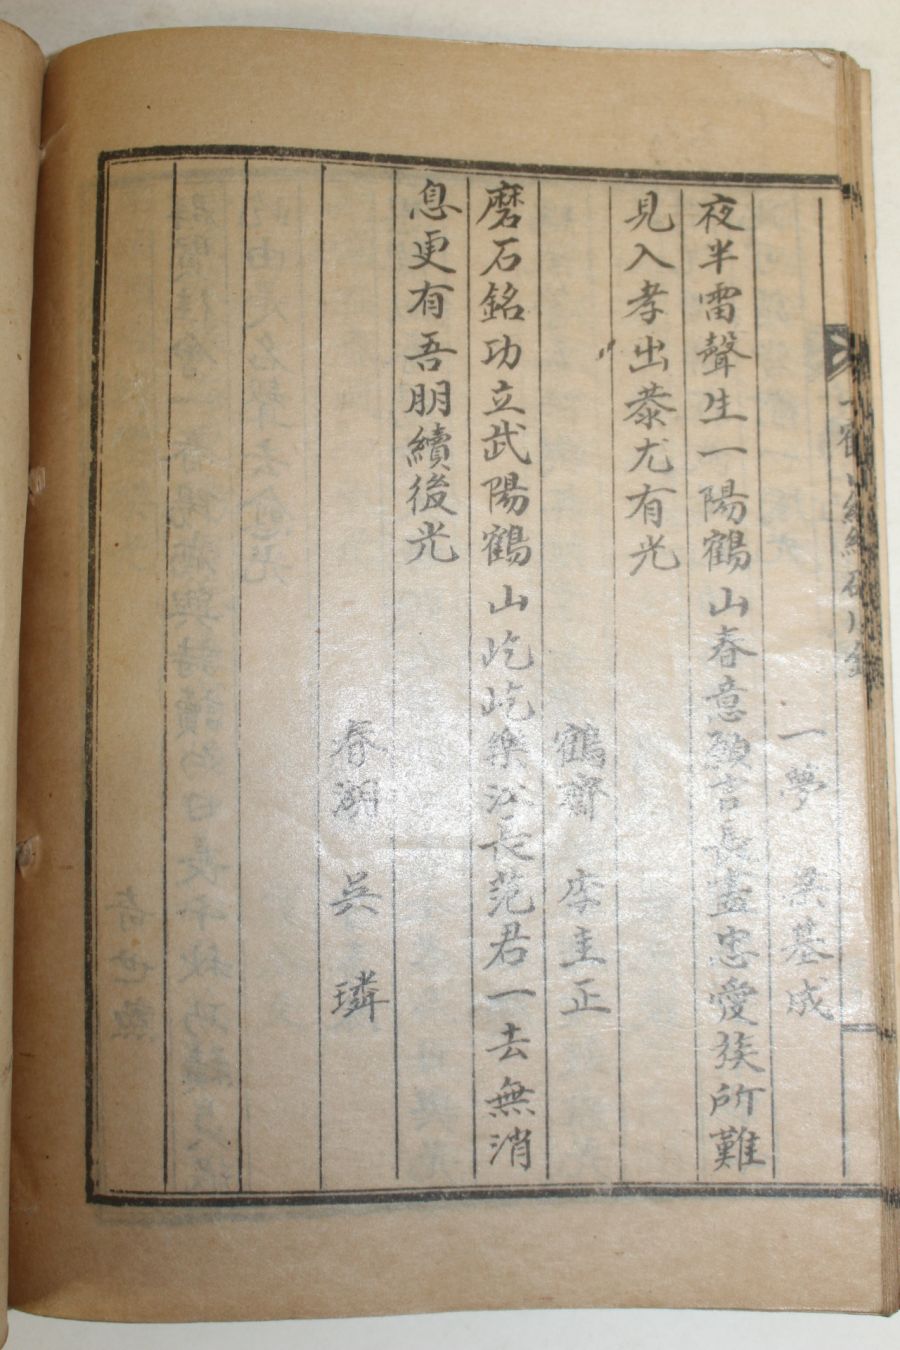 一夢 梁基成
夜半雷聲生一陽鶴山春意願言長盡忠愛族所難
見入孝出恭尤有光
鶴齋 李圭正
磨石銘功立武陽鶴山屹屹樂江長范君一去無消
息更有吾朋續後光
春湖 吳璘